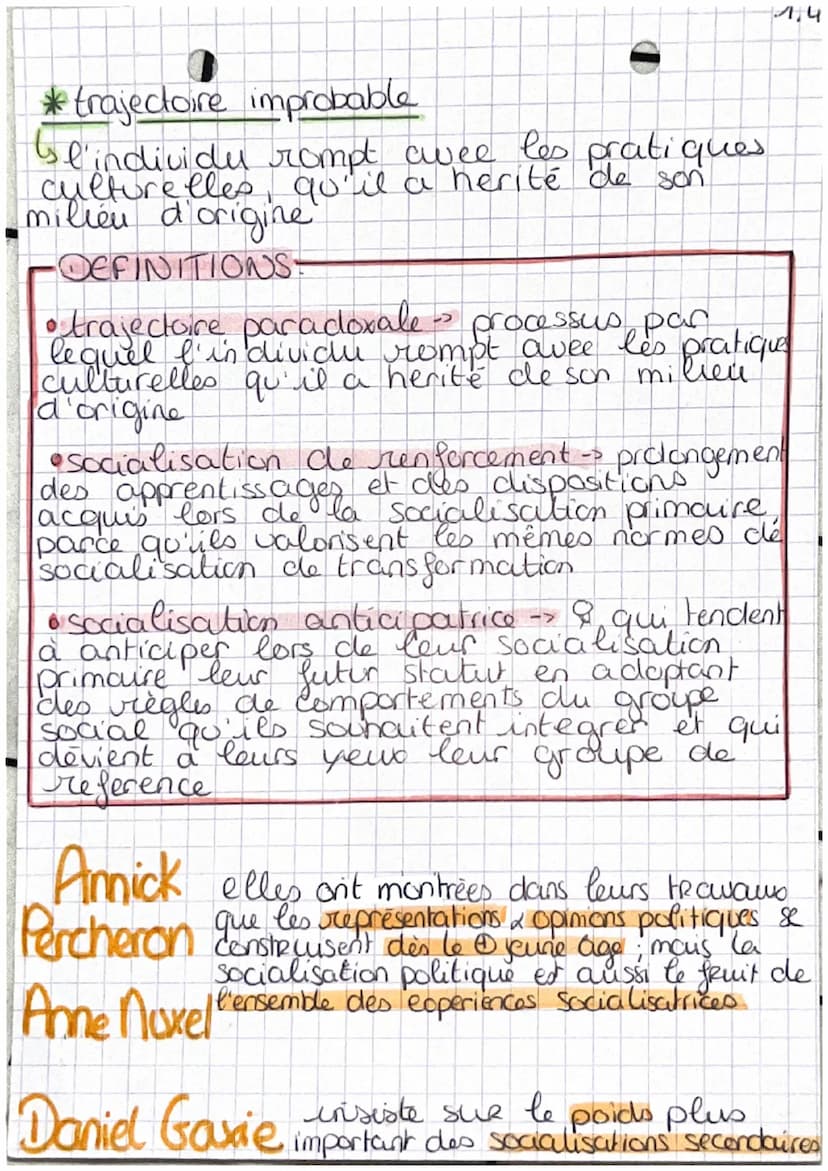 1,4
* trajectoire improbable
↳ l'individu rompt avec les pratiques
culturelles, qu'il a herité de son
milieu d'origine
DEFINITIONS:
• trajectoire paradoxale -> processus par
lequel l'individu rompt avec les pratique
culturelles qu'il a herité de son milieu
d'origine
• socialisation de renforcement -> prolongement
des apprentissages et des dispositions
acquis lors de la socialisation primaire,
parce qu'ils valorisent les mêmes normes de
socialisation de transformation
• socialisation anticipatrice -> qui tendent
à anticiper lors de leur socialisation
primaire leur futur statut en adoptant
des règles de comportements du groupe
social qu'ils souhaitent integrer et qui
dévient à leurs yeux leur groupe de
reference
Annick
Percheron
Anne Muxel
elles ont montrées dans leurs travaux
que les représentations & opinions politiques se
construisent dès le ⊕ jeune âge ; mais la
socialisation politique est aussi le fruit de
l'ensemble des experiences socialisatrices
Daniel Gaxie
insiste sur le poids plus
important des socialisations secondaires